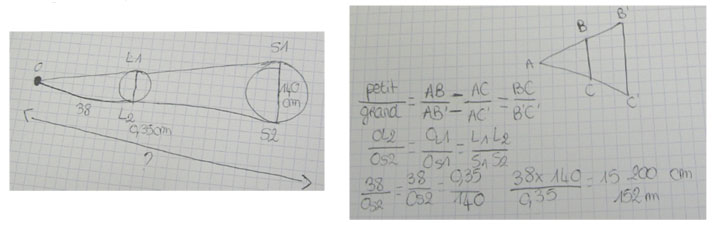 O
L1
S1
38
L2
0,35cm
140
cm
S2
?
A
B
B'
C
C'
petit/grand = AB/AB' = AC/AC' = BC/B'C'
OL2/OS2 = OL1/OS1 = L1L2/S1S2
38/OS2 = 38/OS2 = 0,35/140   38 x 140/0,35 = 15 200 cm
152 m